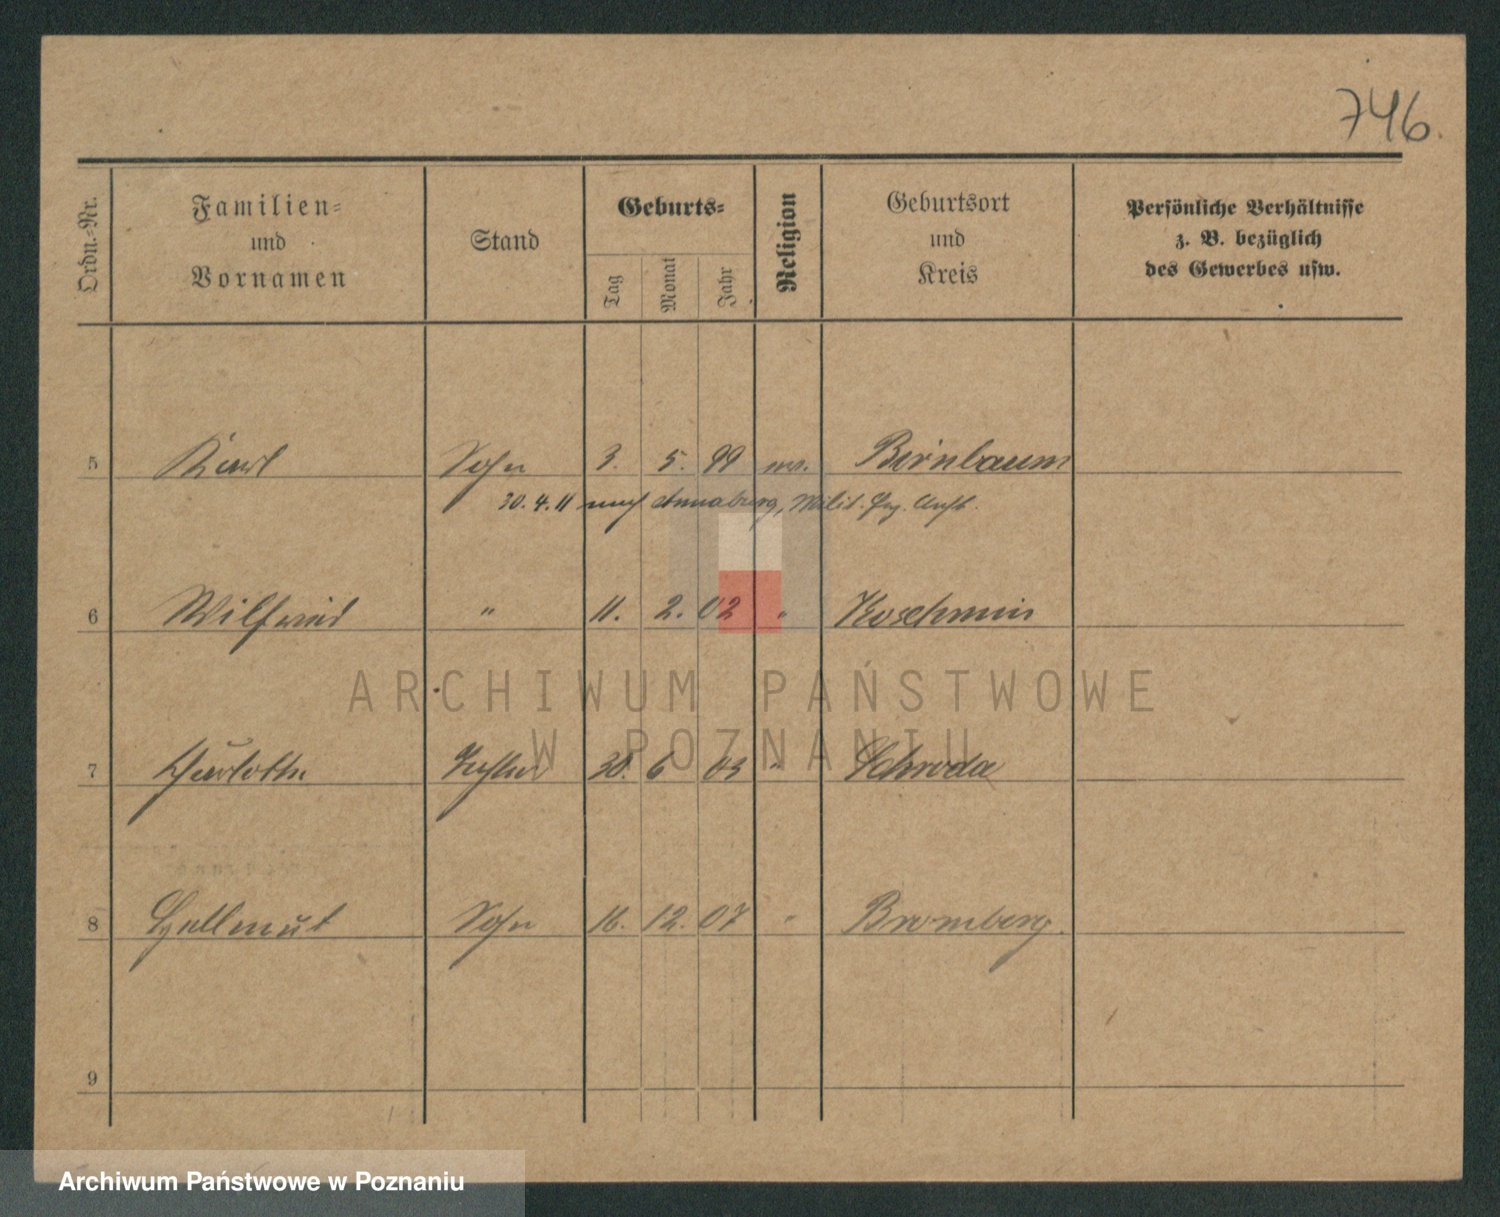 746.
Ordn.-Nr.
Familien- und Vornamen
Stand
Geburts-
Tag
Monat
Jahr
Religion
Geburtsort und Kreis
Persönliche Verhältnisse
z. B. bezüglich
des Gewerbes usw.
5 Karl Sohn 3. 5. 99 Birnbaum
30.4.11 nach Annaburg, Milit.
6 Wilfried " 11. 2. 02 " Koschmin
ARCHIWUM PAŃSTWOWE
W POZNANIU
7 Tochter 6 03 " Schroda
8 Hellmut Sohn 16. 12. 07 " Bromberg.
9
Archiwum Państwowe w Poznaniu